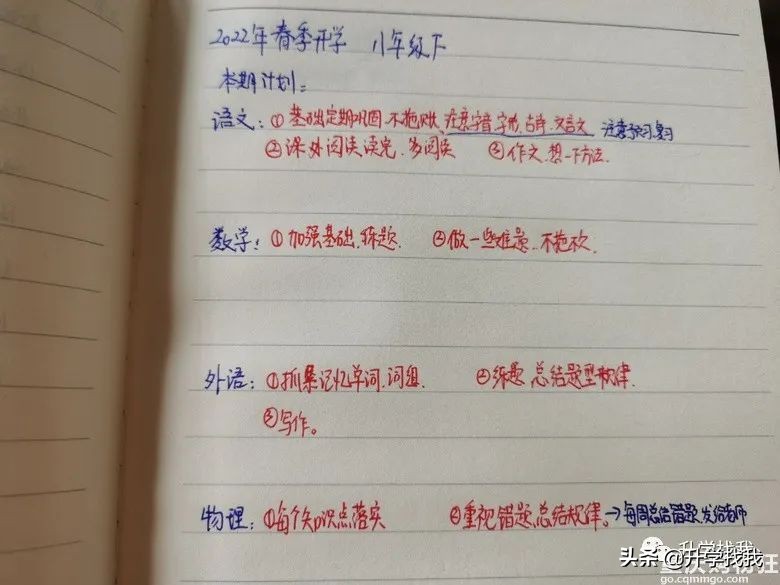 2022年春季开学 八年级下
本期计划:
语文:①基础定期巩固.不拖欠.注意字音字形.古诗.文言文 注意预习.复习
②课外阅读读完.多阅读 ③作文.想一下方法.
数学:①加强基础.练题. ②做一些难题.不拖欠.
外语:①抓紧记忆单词.词组. ②练题.总结题型规律.
③写作。
物理:①每个知识点落实 ②重视错题.总结规律。→每周总结错题.发给老师
升学找我
头条@升学找我
重庆购物狂
go.cqmmgo.com